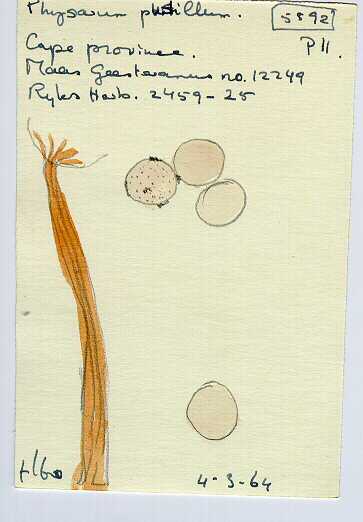 Physarum pusillum.
5892
Cape province. P11.
Maas Geesteranus no. 12249
Ryks Herb. 2459-25
4-3-64